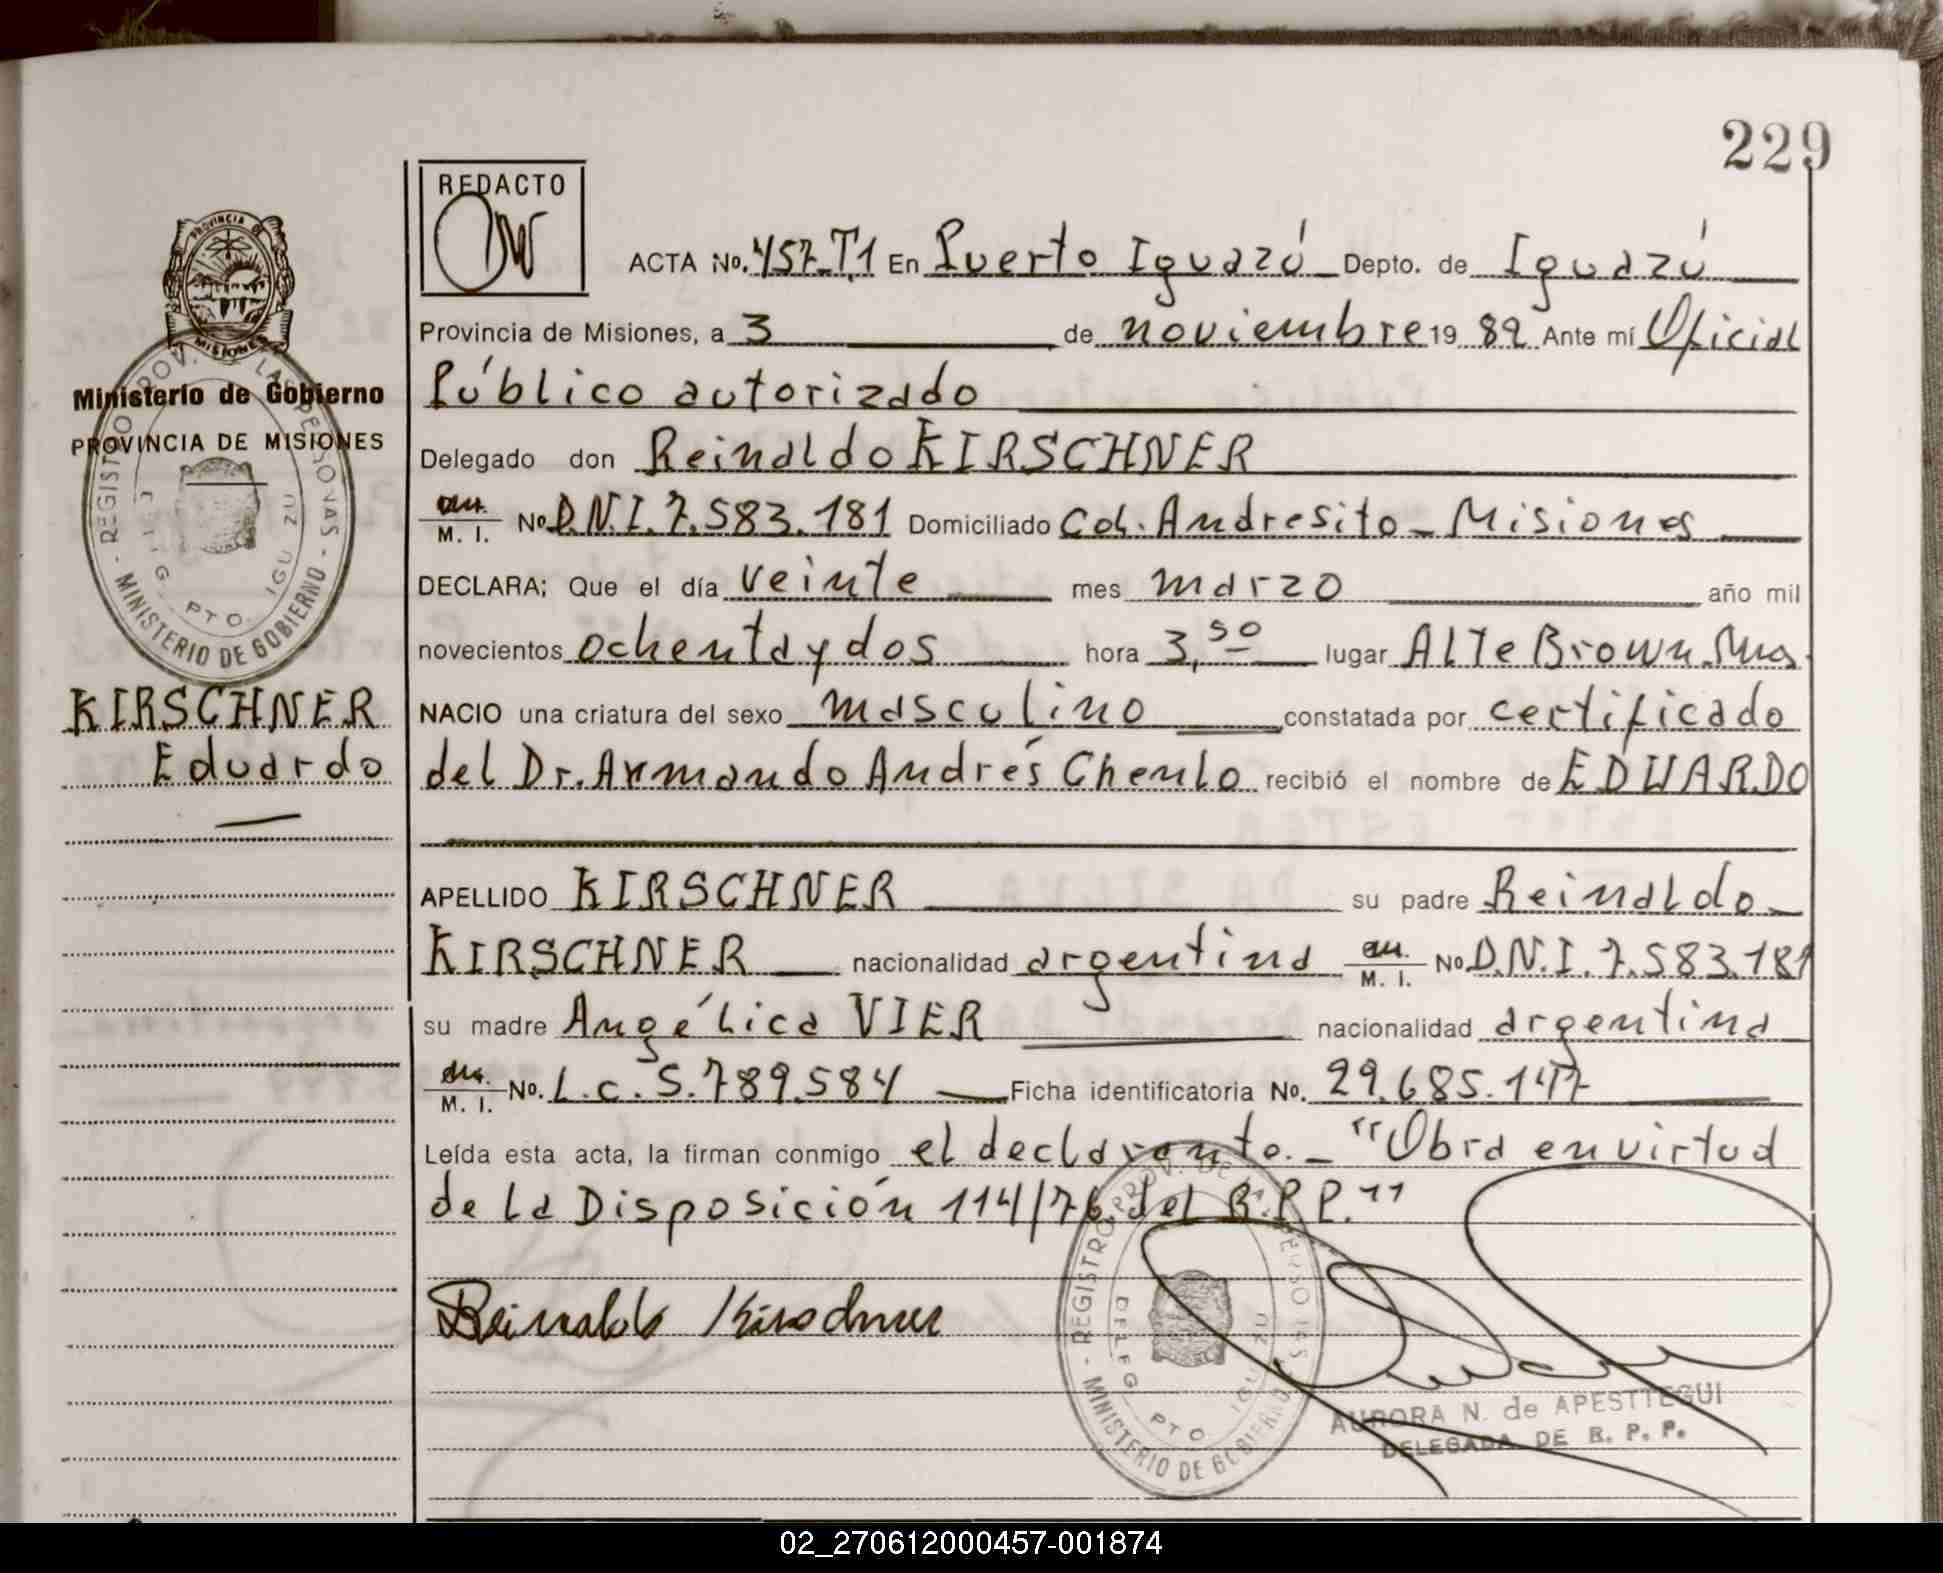 229
REDACTO
PROVINCIA DE
MISIONES
ACTA No. 457-T1 En Puerto Iguazú Depto. de Iguazú
Provincia de Misiones, a 3 de noviembre 19 82 Ante mí Oficial
Ministerio de Gobierno
Público autorizado
PROVINCIA DE MISIONES
Delegado don Reinaldo KIRSCHNER
M. I. No D.N.I. 7.583.181 Domiciliado Col. Andresito - Misiones
DECLARA; Que el día veinte mes marzo año mil
novecientos ochenta y dos hora 3,50 lugar Alte Brown. Mns.
- REGISTRO PROV. DE LAS PERSONAS - MINISTERIO DE GOBIERNO
DELEG PTO IGUZU
KIRSCHNER
Eduardo
NACIO una criatura del sexo masculino constatada por certificado
del Dr. Armando Andrés Chemlo recibió el nombre de EDUARDO
APELLIDO KIRSCHNER su padre Reinaldo
KIRSCHNER nacionalidad argentina M. I. No D.N.I. 7.583.181
su madre Angélica VIER nacionalidad argentina
M. I. No. L.C. 5.789.584 Ficha identificatoria No. 29.685.147
Leída esta acta, la firman conmigo el declarante. - "Obra en virtud
de la Disposición 114/76 del R.P.P."
Reinaldo Kirschner
- REGISTRO PROV. DE LAS PERSONAS - MINISTERIO DE GOBIERNO
DELEG PTO IGUZU
AURORA N. de APESTTEGUI
DELEGADA DE R. P. P.
02_270612000457-001874